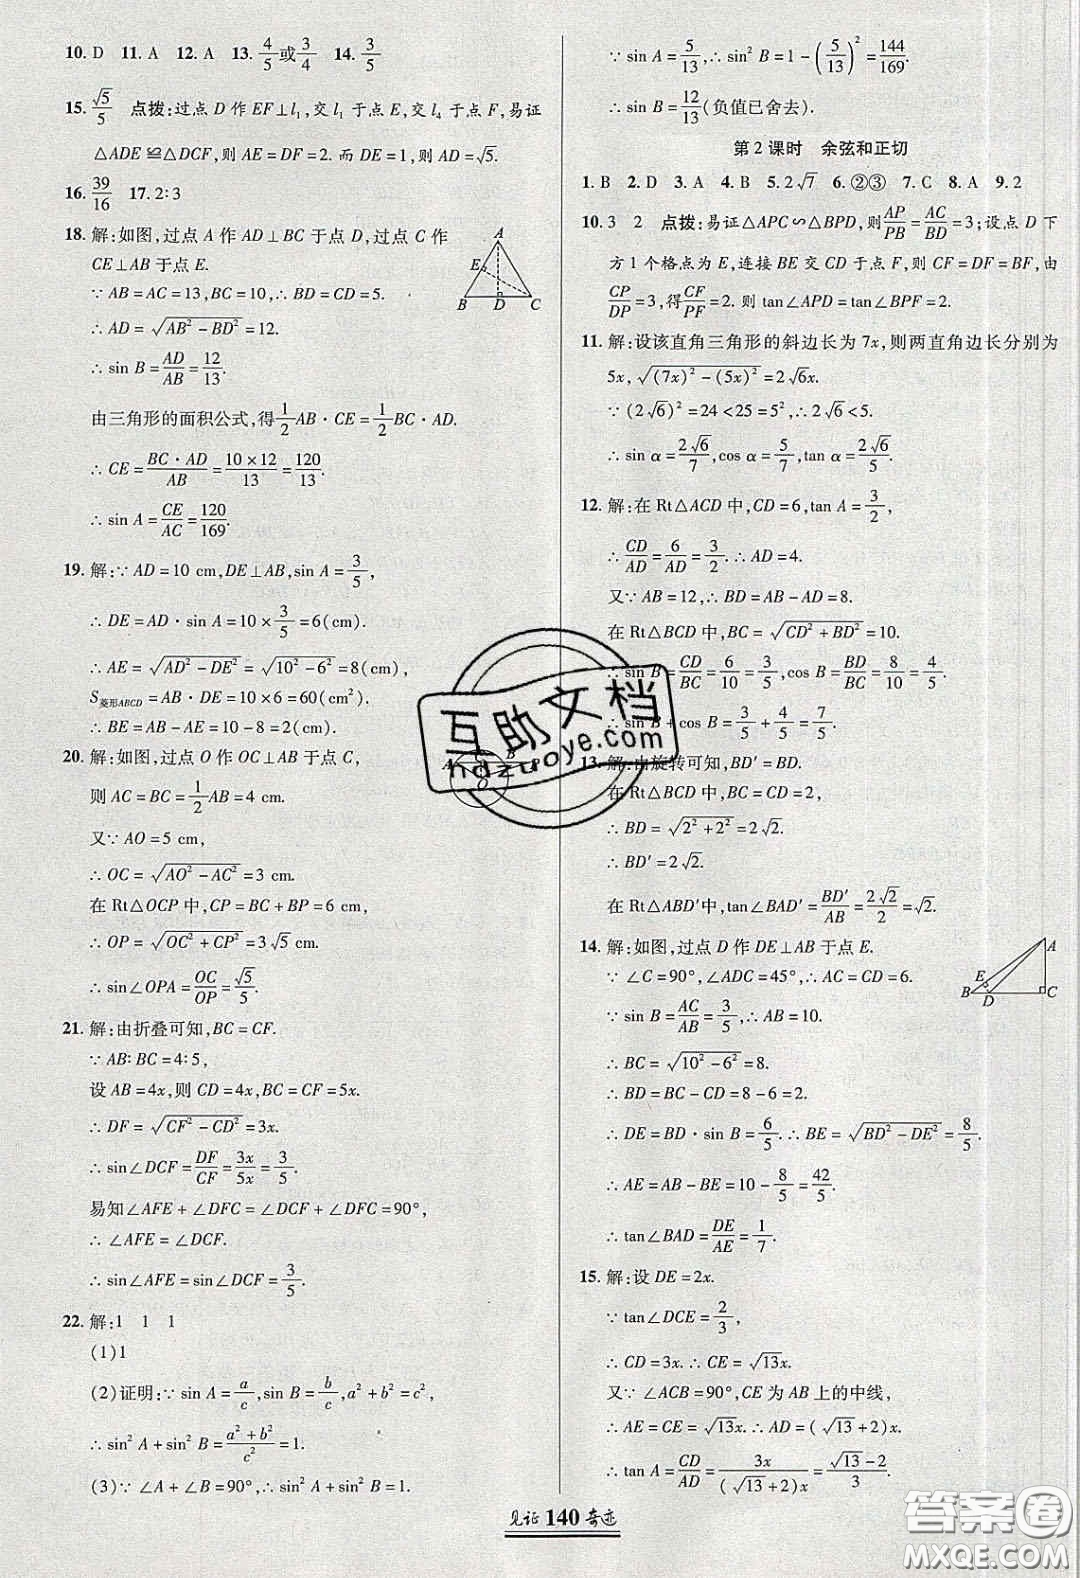 10. D 11. A 12. A 13. 4/5或3/4 14. 3/5
15. √5/5 点拨:过点 D 作 EF⊥l₁,交 l₁ 于点 E,交 l₄ 于点 F,易证
△ADE≌△DCF,则 AE=DF=2. 而 DE=1,可得 AD=√5.
16. 39/16 17. 2:3
18. 解:如图,过点 A 作 AD⊥BC 于点 D,过点 C 作
CE⊥AB 于点 E.
∵AB=AC=13,BC=10,∴BD=CD=5.
∴AD=√(AB²-BD²)=12.
∴sin B=AD/AB=12/13.
由三角形的面积公式,得1/2AB·CE=1/2BC·AD.
∴CE=BC·AD/AB=10×12/13=120/13.
∴sin A=CE/AC=120/169.
A
E
B D C
19. 解:∵AD=10 cm,DE⊥AB,sin A=3/5,
∴DE=AD·sin A=10×3/5=6(cm).
∴AE=√(AD²-DE²)=√(10²-6²)=8(cm),
S菱形ABCD=AB·DE=10×6=60(cm²).
∴BE=AB-AE=10-8=2(cm).
20. 解:如图,过点 O 作 OC⊥AB 于点 C,
则 AC=BC=1/2AB=4 cm.
又∵AO=5 cm,
∴OC=√(AO²-AC²)=3 cm.
在 Rt△OCP 中,CP=BC+BP=6 cm,
∴OP=√(OC²+CP²)=3√5 cm.
∴sin∠OPA=OC/OP=√5/5.
A B P
O
21. 解:由折叠可知,BC=CF.
∵AB:BC=4:5,
设 AB=4x,则 CD=4x,BC=CF=5x.
∴DF=√(CF²-CD²)=3x.
∴sin∠DCF=DF/CF=3x/5x=3/5.
易知∠AFE+∠DFC=∠DCF+∠DFC=90°,
∴∠AFE=∠DCF.
∴sin∠AFE=sin∠DCF=3/5.
22. 解:1 1 1
(1)1
(2)证明:∵sin A=a/c,sin B=b/c,a²+b²=c²,
∴sin²A+sin²B=(a²+b²)/c²=1.
(3)∵∠A+∠B=90°,∴sin²A+sin²B=1.
∵sin A=5/13,∴sin²B=1-(5/13)²=144/169.
∴sin B=12/13(负值已舍去).
第 2 课时 余弦和正切
1. B 2. D 3. A 4. B 5. 2√7 6. ②③ 7. C 8. A 9. 2
10. 3 2 点拨:易证△APC∽△BPD,则AP/PB=AC/BD=3;设点 D 下
方 1 个格点为 E,连接 BE 交 CD 于点 F,则 CF=DF=BF,由
CP/DP=3,得CF/PF=2. 则 tan∠APD=tan∠BPF=2.
11. 解:设该直角三角形的斜边长为 7x,则两直角边长分别为
5x,√((7x)²-(5x)²)=2√6x.
∵(2√6)²=24<25=5²,∴2√6<5.
∴sin α=2√6/7,cos α=5/7,tan α=2√6/5.
12. 解:在 Rt△ACD 中,CD=6,tan A=3/2,
∴CD/AD=6/AD=3/2.∴AD=4.
又∵AB=12,∴BD=AB-AD=8.
在 Rt△BCD 中,BC=√(CD²+BD²)=10.
∴sin B=CD/BC=6/10=3/5,cos B=BD/BC=8/10=4/5.
∴sin B+cos B=3/5+4/5=7/5.
13. 解:由旋转可知,BD′=BD.
在 Rt△BCD 中,BC=CD=2,
∴BD=√(2²+2²)=2√2.
∴BD′=2√2.
在 Rt△ABD′中,tan∠BAD′=BD′/AB=2√2/2=√2.
14. 解:如图,过点 D 作 DE⊥AB 于点 E.
∵∠C=90°,∠ADC=45°,∴AC=CD=6.
∵sin B=AC/AB=3/5,∴AB=10.
∴BC=√(10²-6²)=8.
∴BD=BC-CD=8-6=2.
∴DE=BD·sin B=6/5.∴BE=√(BD²-DE²)=8/5.
∴AE=AB-BE=10-8/5=42/5.
∴tan∠BAD=DE/AE=1/7.
A
E
B D C
15. 解:设 DE=2x.
∵tan∠DCE=2/3,
∴CD=3x.∴CE=√13x.
又∵∠ACB=90°,CE 为 AB 上的中线,
∴AE=CE=√13x.∴AD=(√13+2)x.
∴tan A=CD/AD=3x/(√13+2)x=(√13-2)/3.
见证 140 奇迹
互助文档
hdzuoye.com
答案圈
MXQE.COM